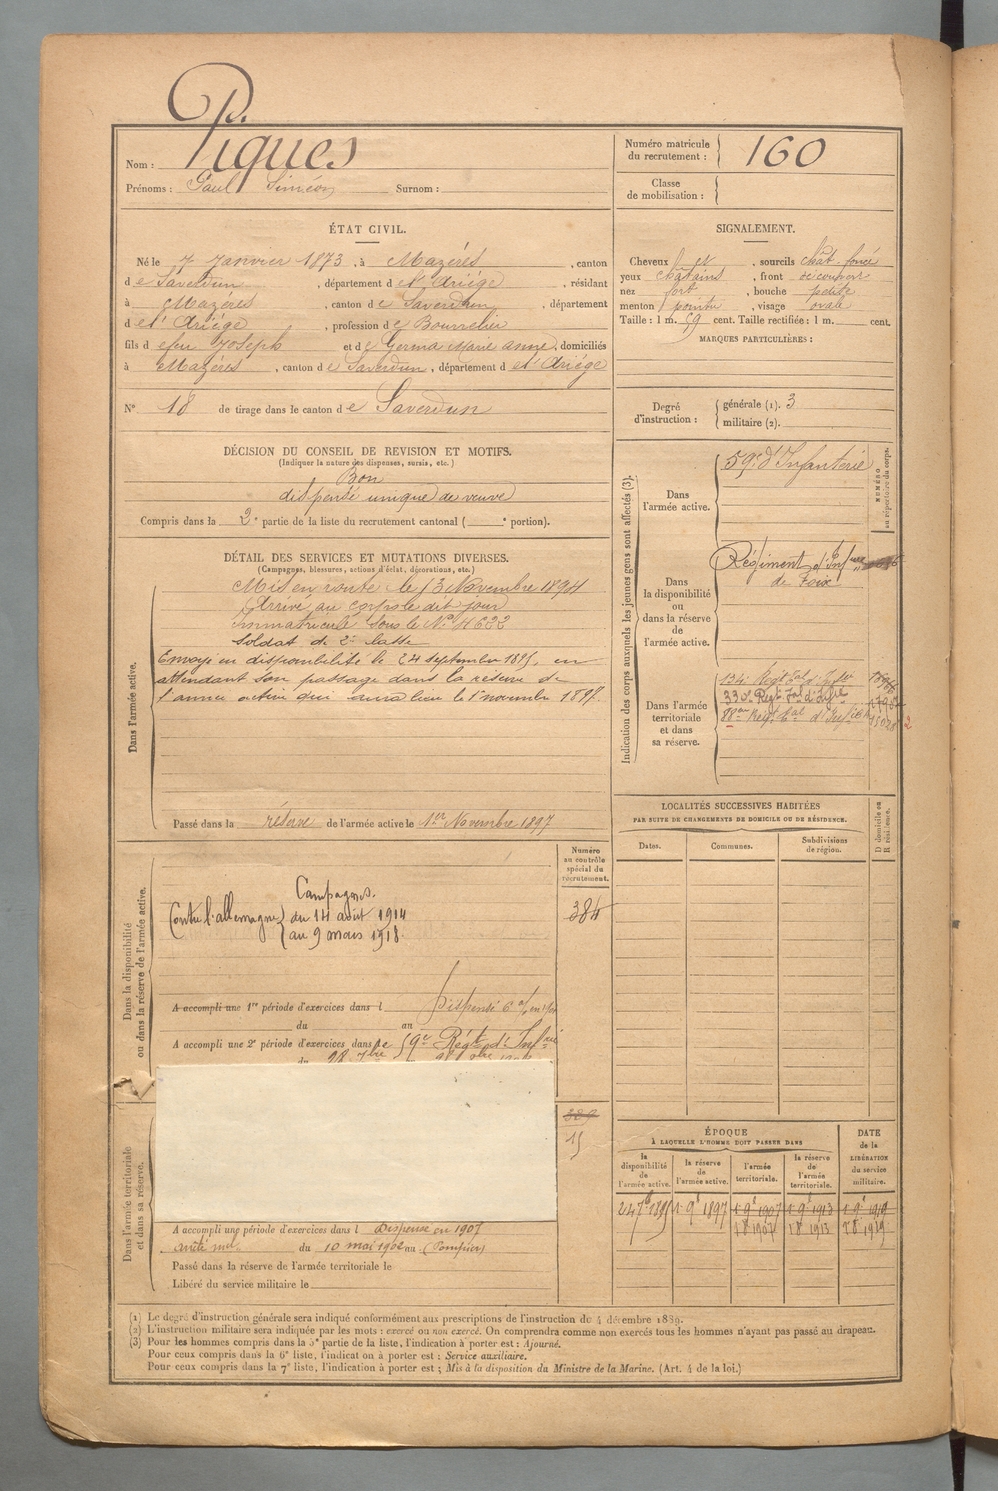 P.
Piques
Nom :
Prénoms : Paul Siméon Surnom :
Numéro matricule
du recrutement : 160
Classe
de mobilisation :
ÉTAT CIVIL.
Né le 7 Janvier 1873, à Mazérès, canton
de Saverdun, département de l'Ariége, résidant
à Mazérès, canton de Saverdun, département
de l'Ariége, profession de Bourrelier
fils d efeu Joseph et de Germa Marie Anne, domiciliés
à Mazérès, canton de Saverdun, département de l'Ariége
N° 18 de tirage dans le canton de Saverdun
SIGNALEMENT.
Cheveux et, sourcils chât. foncé
yeux châtains, front découvert
nez fort, bouche petite
menton pointu, visage ovale
Taille : 1 m. 59 cent. Taille rectifiée : 1 m. cent.
MARQUES PARTICULIÈRES :
Degré
d'instruction :
générale (1). 3
militaire (2).
DÉCISION DU CONSEIL DE REVISION ET MOTIFS.
(Indiquer la nature des dispenses, sursis, etc.)
Bon
dispensé unique de veuve
Compris dans la 2e partie de la liste du recrutement cantonal ( e portion).
DÉTAIL DES SERVICES ET MUTATIONS DIVERSES.
(Campagnes, blessures, actions d'éclat, décorations, etc.)
Dans l'armée active.
Mis en route le 13 Novembre 1894
Arrivé au corps le dit jour
Immatriculé sous le N° 4622
Soldat de 2e classe
Envoyé en disponibilité le 24 septembre 1895, en
attendant son passage dans la réserve de
l'armée active qui aura lieu le 1er novembre 1897.
Passé dans la réserve de l'armée active le 1er Novembre 1897
Indication des corps auxquels les jeunes gens sont affectés (3).
NUMÉRO
au répertoire du corps.
Dans
l'armée active.
59e d'Infanterie
Dans
la disponibilité
ou
dans la réserve
de
l'armée active.
Régiment d'Infrie
de Foix
Dans l'armée
territoriale
et dans
sa réserve.
134e Régt tal d'Infrie
330e Regt tal d'Infie
88e Régt tal d'Infrie 15028 2
LOCALITÉS SUCCESSIVES HABITÉES
PAR SUITE DE CHANGEMENTS DE DOMICILE OU DE RÉSIDENCE.
D domicile ou
R résidence.
Dates. Communes. Subdivisions
de région.
Dans la disponibilité
ou dans la réserve de l'armée active.
Numéro
au contrôle
spécial du
recrutement.
384
Campagnes.
Contre l'allemagne du 14 août 1914
au 9 mars 1918.
A accompli une 1re période d'exercices dans l Dispensé
du au
A accompli une 2e période d'exercices dans le 59e Régt d'Infrie
du 28
Dans l'armée territoriale
et dans sa réserve.
389
15
A accompli une période d'exercices dans l Dispensé en 1907
du 10 mai 1902 au (Pompiers)
Passé dans la réserve de l'armée territoriale le
Libéré du service militaire le
ÉPOQUE
À LAQUELLE L'HOMME DOIT PASSER DANS
la
disponibilité
de
l'armée active.
la réserve
de
l'armée active.
l'armée
territoriale.
la réserve
de
l'armée
territoriale.
DATE
de la
LIBÉRATION
du service
militaire.
24 7b 1895 1. 9b 1897 1. 9b 1907 1. 9b 1913 1. 9b 1919
1 8 1907 1 8 1913 1 8 1919
(1) Le degré d'instruction générale sera indiqué conformément aux prescriptions de l'instruction du 4 décembre 1889.
(2) L'instruction militaire sera indiquée par les mots : exercé ou non exercé. On comprendra comme non exercés tous les hommes n'ayant pas passé au drapeau.
(3) Pour les hommes compris dans la 5e partie de la liste, l'indication à porter est : Ajourné.
Pour ceux compris dans la 6e liste, l'indication à porter est : Service auxiliaire.
Pour ceux compris dans la 7e liste, l'indication à porter est ; Mis à la disposition du Ministre de la Marine. (Art. 4 de la loi.)